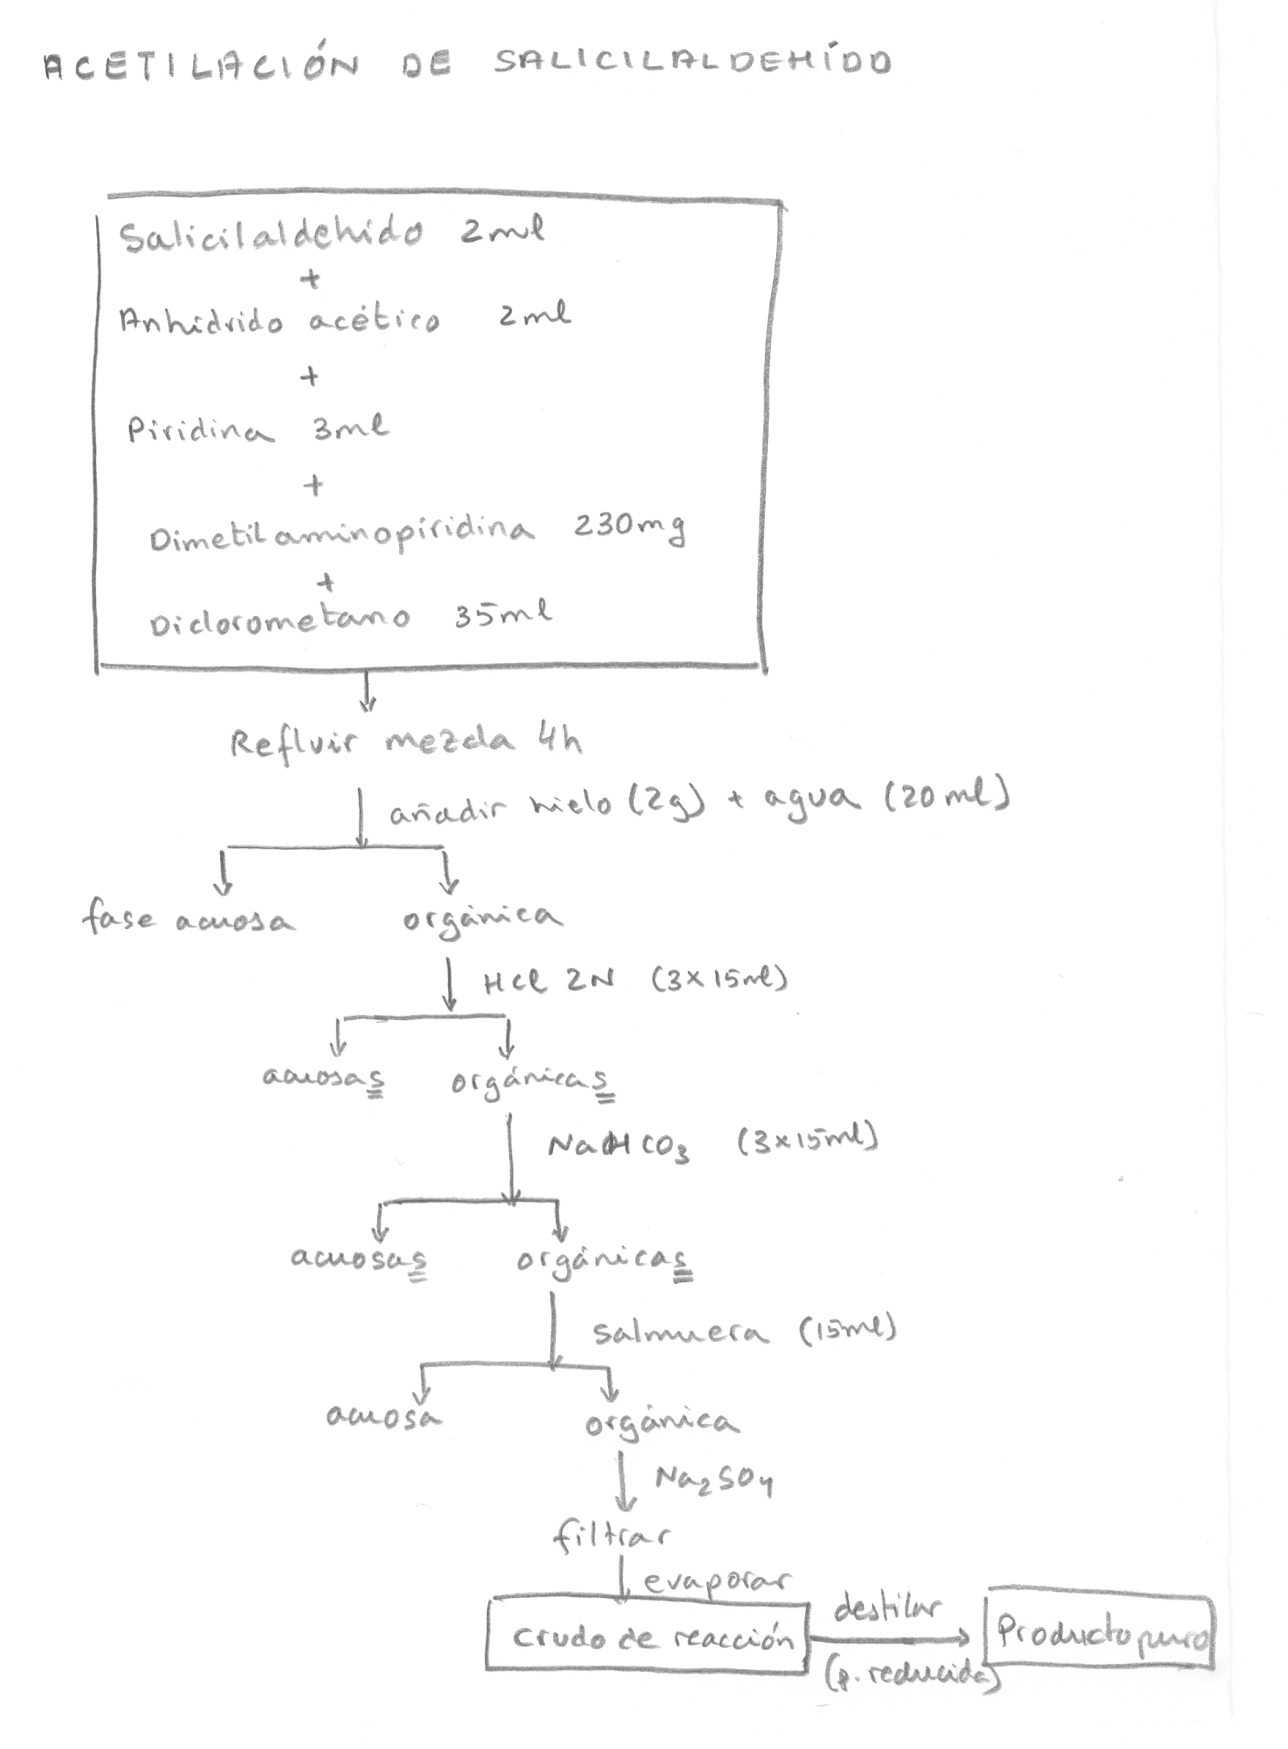 ACETILACIÓN DE SALICILALDEHÍDO
Salicilaldehido 2ml
+
Anhidrido acético 2ml
+
Piridina 3ml
+
Dimetilaminopiridina 230mg
+
Diclorometano 35ml
Refluir mezcla 4h
añadir hielo (2g) + agua (20 ml)
fase acuosa orgánica
HCl 2N (3×15ml)
acuosas orgánicas
NaHCO3 (3×15ml)
acuosas orgánicas
salmuera (15ml)
acuosa orgánica
Na2SO4
filtrar
evaporar
crudo de reacción destilar (p. reducida) Producto puro